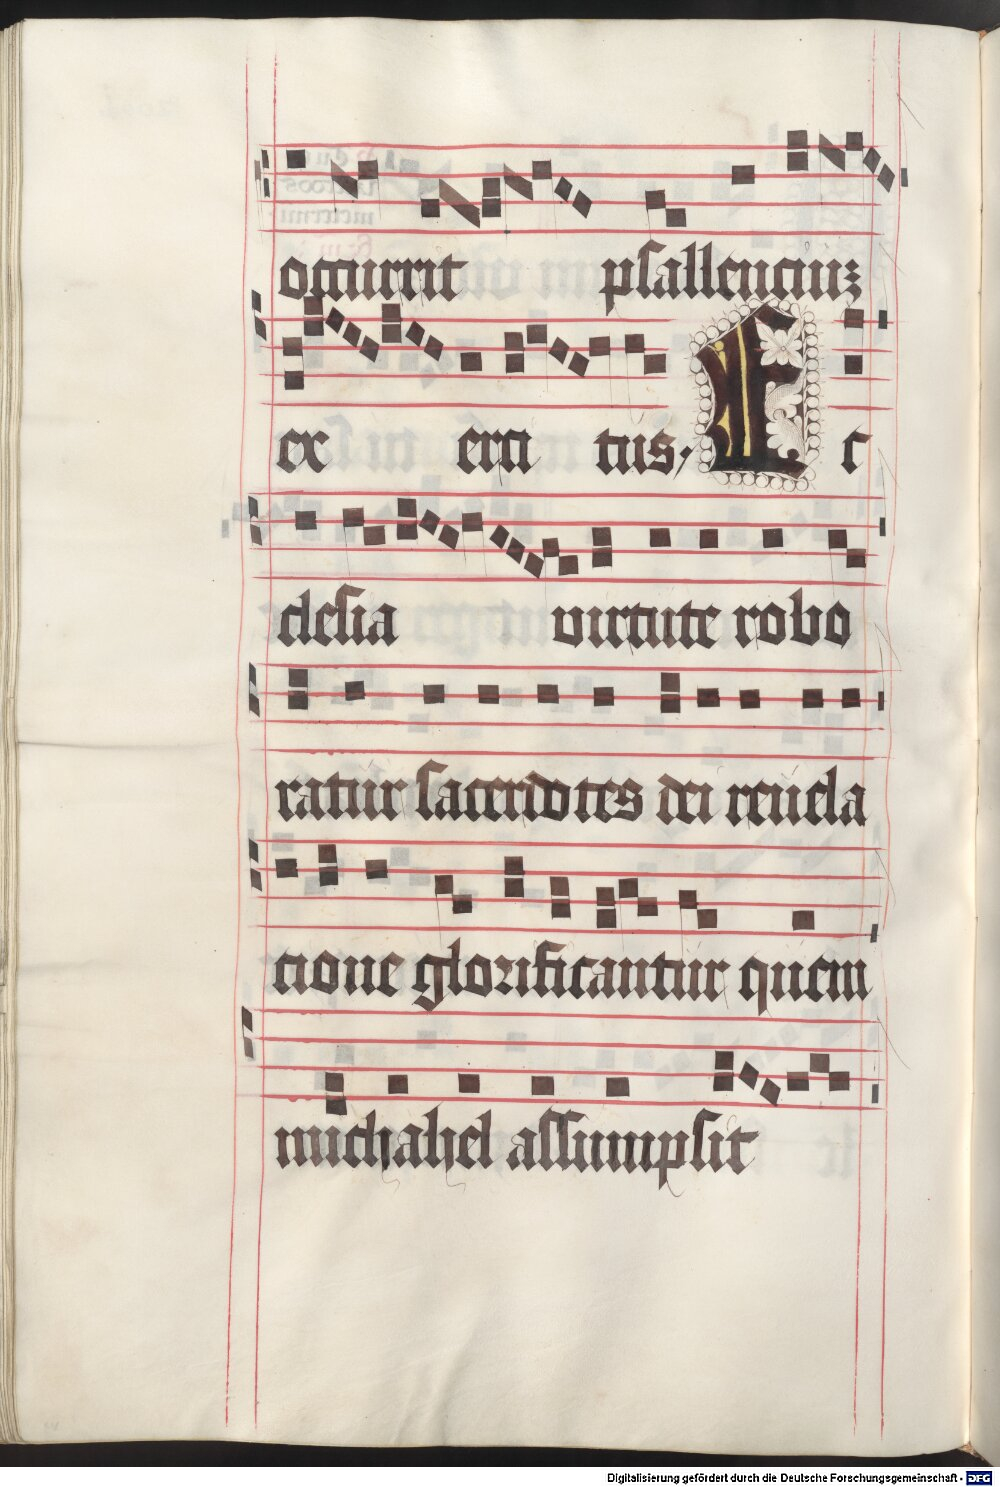 occurrit psallenciuꝫ
ex erci tus. Ec
clesia virtute robo
ratur sacerdotes dei reuela
tione glorificantur quem
michahel assumpsit
Digitalisierung gefördert durch die Deutsche Forschungsgemeinschaft - DFG